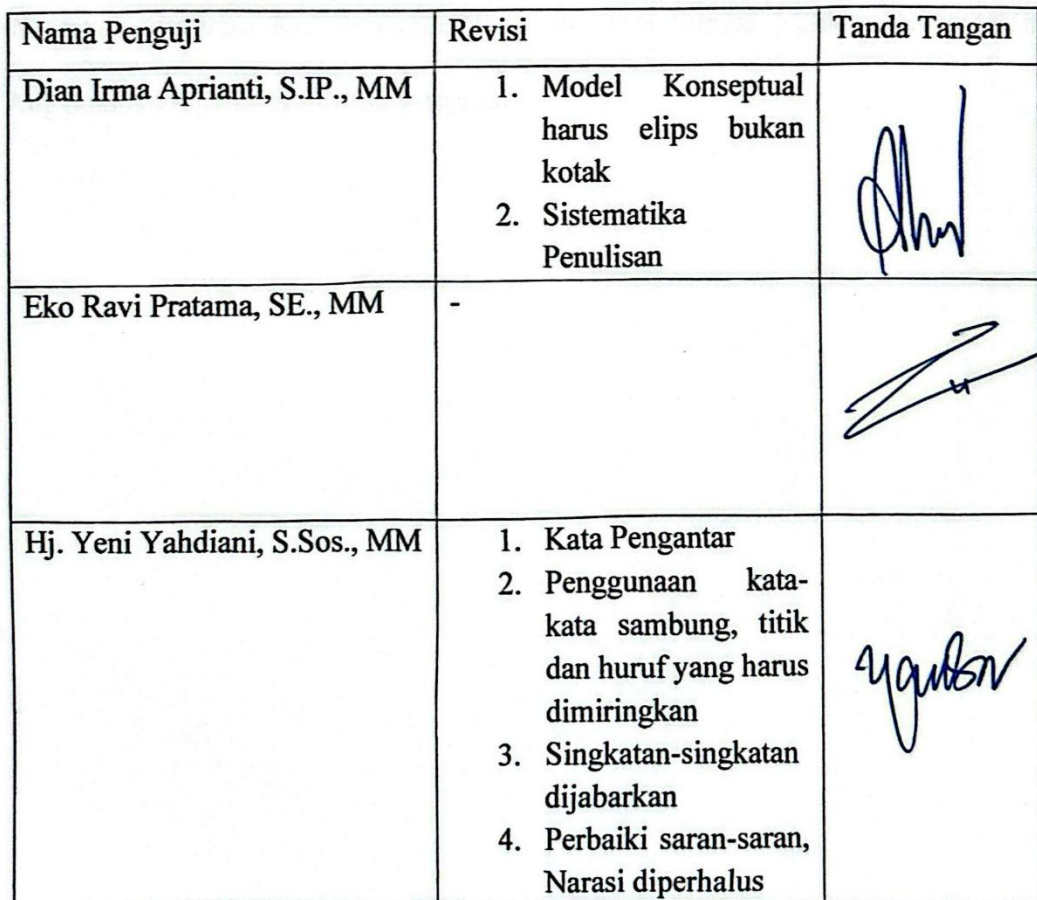 Nama Penguji
Revisi
Tanda Tangan
Dian Irma Aprianti, S.IP., MM
1. Model Konseptual
harus elips bukan
kotak
2. Sistematika
Penulisan
Eko Ravi Pratama, SE., MM
-
Hj. Yeni Yahdiani, S.Sos., MM
1. Kata Pengantar
2. Penggunaan kata-
kata sambung, titik
dan huruf yang harus
dimiringkan
3. Singkatan-singkatan
dijabarkan
4. Perbaiki saran-saran,
Narasi diperhalus